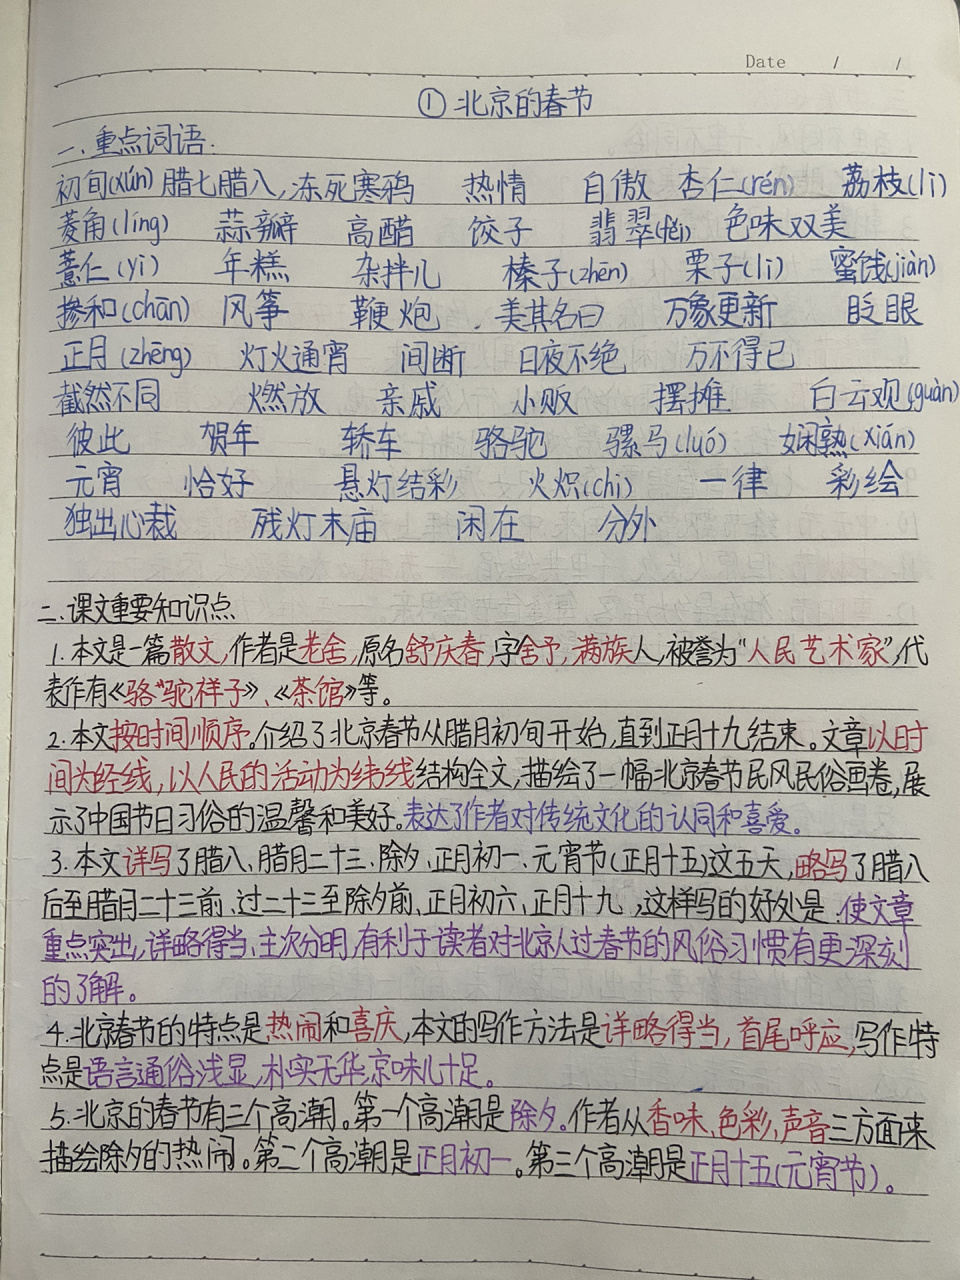 Date / /
①北京的春节
一.重点词语.
初旬(xún) 腊七腊八,冻死寒鸦 热情 自傲 杏仁(rén) 荔枝(lì)
菱角(líng) 蒜瓣 高醋 饺子 翡翠(fěi) 色味双美
薏仁(yì) 年糕 杂拌儿 榛子(zhēn) 栗子(lì) 蜜饯(jiàn)
掺和(chān) 风筝 鞭炮 美其名曰 万象更新 眨眼
正月(zhēng) 灯火通宵 间断 日夜不绝 万不得已
截然不同 燃放 亲戚 小贩 摆摊 白云观(guàn)
彼此 贺年 轿车 骆驼 骡马(luó) 娴熟(xián)
元宵 恰好 悬灯结彩 火炽(chì) 一律 彩绘
独出心裁 残灯末庙 闲在 分外
二.课文重要知识点
1.本文是一篇散文,作者是老舍,原名舒庆春,字舍予,满族人,被誉为“人民艺术家”,代
表作有《骆驼祥子》、《茶馆》等。
2.本文按时间顺序.介绍了北京春节从腊月初旬开始,直到正月十九结束。文章以时
间为经线,以人民的活动为纬线结构全文,描绘了一幅北京春节民风民俗画卷,展
示了中国节日习俗的温馨和美好.表达了作者对传统文化的认同和喜爱。
3.本文详写了腊八、腊月二十三、除夕、正月初一、元宵节(正月十五)这五天,略写了腊八
后至腊月二十三前、过二十三至除夕前、正月初六、正月十九,这样写的好处是:使文章
重点突出,详略得当、主次分明,有利于读者对北京人过春节的风俗习惯有更深刻
的了解。
4.北京春节的特点是热闹和喜庆,本文的写作方法是详略得当,首尾呼应,写作特
点是语言通俗浅显,朴实无华,京味儿十足。
5.北京的春节有三个高潮。第一个高潮是除夕.作者从香味、色彩,声音三方面来
描绘除夕的热闹。第二个高潮是正月初一。第三个高潮是正月十五(元宵节)。